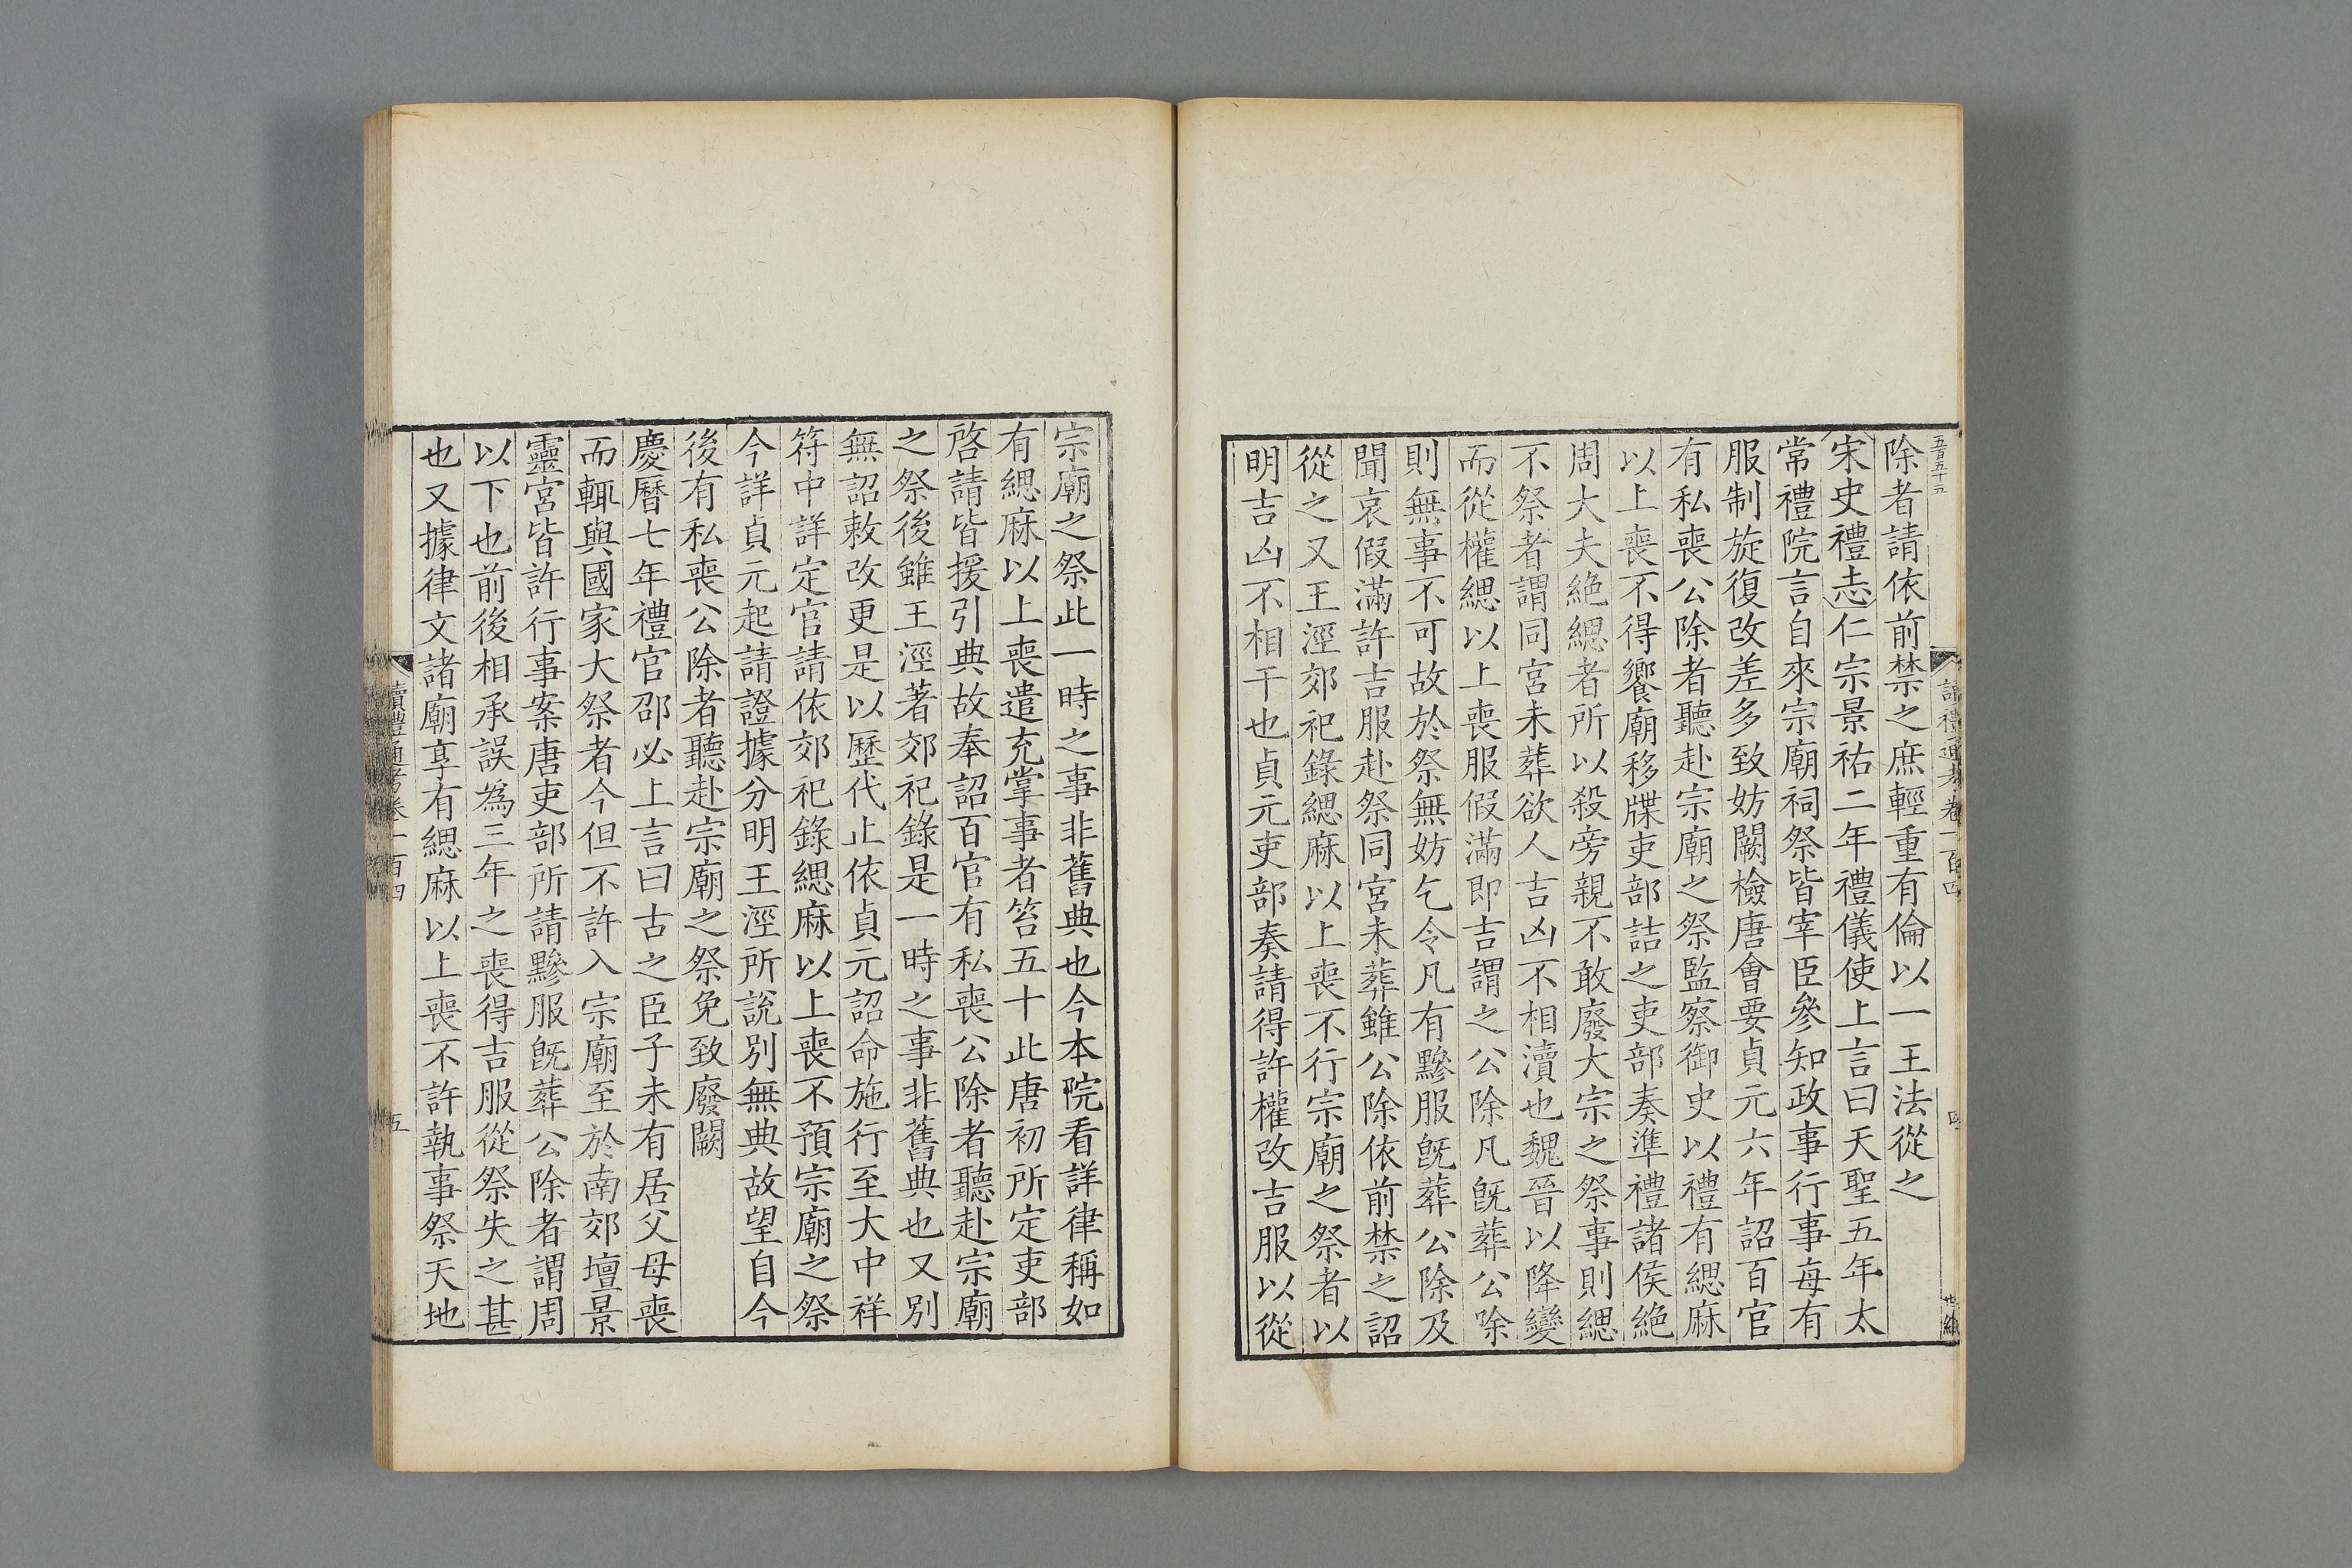 五百五十五
讀禮通考卷一百四
四
除者請依前禁之庶輕重有倫以一王法從之
宋史禮志仁宗景祐二年禮儀使上言曰天聖五年太
常禮院言自來宗廟祠祭皆宰臣參知政事行事每有
服制旋復改差多致妨闕檢唐會要貞元六年詔百官
有私喪公除者聽赴宗廟之祭監察御史以禮有緦麻
以上喪不得饗廟移牒吏部詰之吏部奏準禮諸侯絶
周大夫絶緦者所以殺旁親不敢廢大宗之祭事則緦
不祭者謂同宮未葬欲人吉凶不相瀆也魏晉以降變
而從權緦以上喪服假滿即吉謂之公除凡旣葬公除
則無事不可故於祭無妨乞今凡有黲服旣葬公除及
聞哀假滿許吉服赴祭同宮未葬雖公除依前禁之詔
從之又王涇郊祀錄緦麻以上喪不行宗廟之祭者以
明吉凶不相干也貞元吏部奏請得許權改吉服以從
宗廟之祭此一時之事非舊典也今本院看詳律稱如
有緦麻以上喪遣充掌事者笞五十此唐初所定吏部
啓請皆援引典故奉詔百官有私喪公除者聽赴宗廟
之祭後雖王涇著郊祀錄是一時之事非舊典也又別
無詔敕改更是以歷代止依貞元詔命施行至大中祥
符中詳定官請依郊祀錄緦麻以上喪不預宗廟之祭
今詳貞元起請證據分明王涇所說別無典故望自今
後有私喪公除者聽赴宗廟之祭免致廢闕
慶曆七年禮官邵必上言曰古之臣子未有居父母喪
而輒與國家大祭者今但不許入宗廟至於南郊壇景
靈宮皆許行事案唐吏部所請黲服旣葬公除者謂周
以下也前後相承誤為三年之喪得吉服從祭失之甚
也又據律文諸廟享有緦麻以上喪不許執事祭天地
讀禮通考卷一百四
五